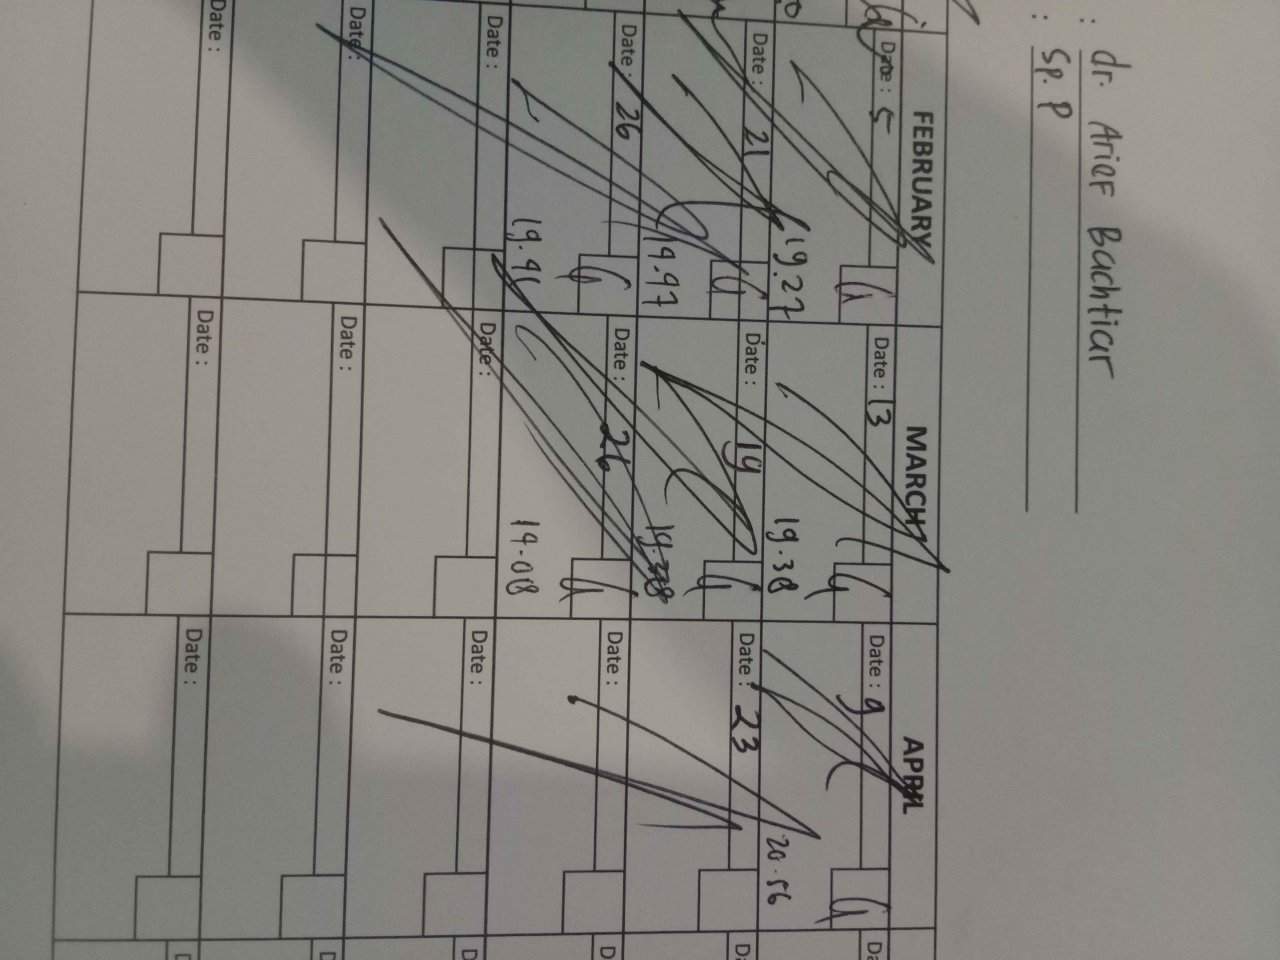 : dr. Arief Bachtiar
: Sp. P
FEBRUARY MARCH APRIL
Date : 5 Date : 13 Date : 9
19.27 19.38 20.56
Date : 21 Date : 19 Date : 23
19.97
Date : 26 Date : 26 Date :
19.08
Date : Date : Date :
Date : Date : Date :
Date : Date : Date :